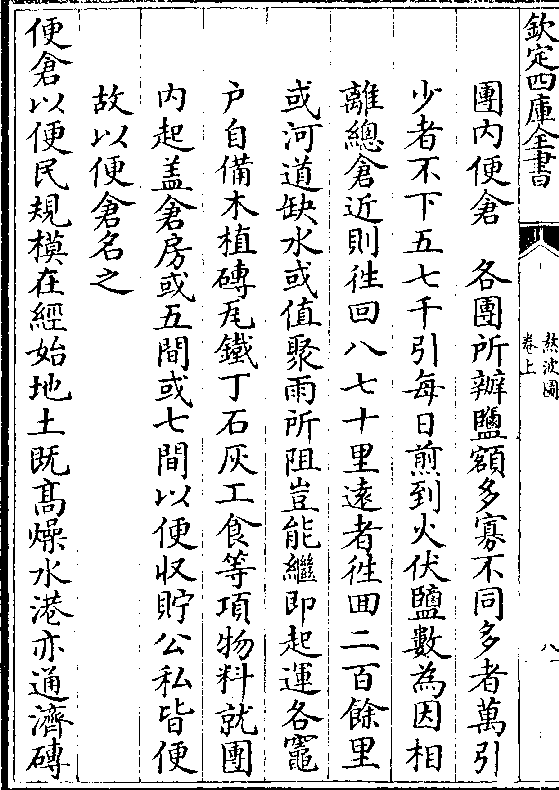 欽定四庫全書
熬波圖
卷上
八
團内便倉　各團所辦鹽額多寡不同多者萬引
少者不下五七千引每日煎到火伏鹽數為因相
離總倉近則徃回八七十里遠者徃回二百餘里
或河道缺水或值聚雨所阻豈能繼即起運各竈
户自備木植磚瓦鐵丁石灰工食等項物料就團
内起盖倉房或五間或七間以便收貯公私皆便
故以便倉名之
便倉以便民規模在經始地土既髙燥水港亦通濟磚